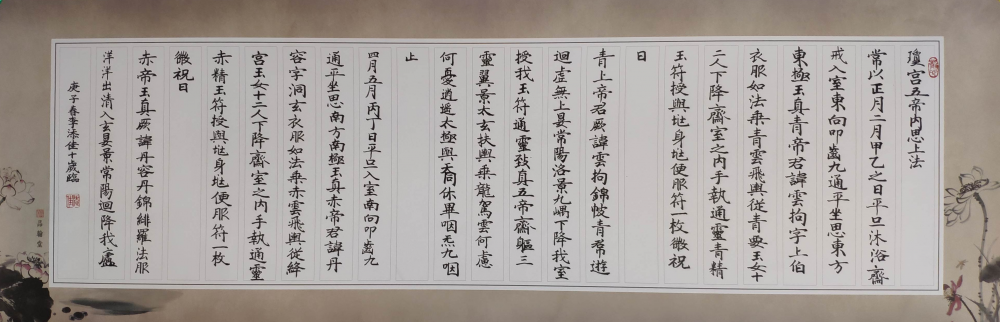 瓊宮五帝內思上法
常以正月二月甲乙之日平旦沐浴齋
戒入室東向叩齒九通平坐思東方
東極玉真青帝君諱雲拘字上伯
衣服如法乘青雲飛輿從青要玉女十
二人下降齋室之內手執通靈青精
玉符授與地身地便服符一枚微祝
日
青上帝君厥諱雲拘錦帔青帬遊
迴虛無上晏常陽洛景九嵎下降我室
授我玉符通靈致真五帝齋軀三
靈翼景太玄扶輿乘龍駕雲何慮
何憂遊遙太極與天同休畢咽炁九咽
止
四月五月丙丁日平旦入室南向叩齒九
通平坐思南方南極玉真赤帝君諱丹
容字洞玄衣服如法乘赤雲飛輿從絳
宮玉女十二人下降齋室之內手執通靈
赤精玉符授與地身地便服符一枚
微祝曰
赤帝玉真厥諱丹容丹錦緋羅法服
洋洋出清入玄晏景常陽迴降我廬
庚子春李添佳十歲臨